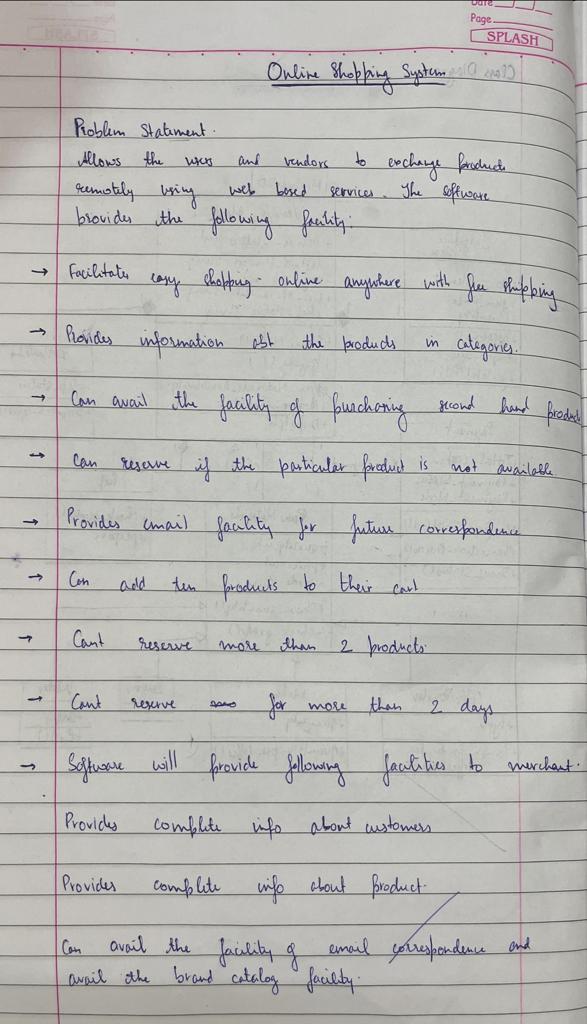 Date
Page
SPLASH
Online Shopping System
Problem Statement.
Allows the users and vendors to exchange products
remotely using web based services. The software
provides the following facility:
→ Facilitates easy shopping online anywhere with free shipping
→ Provides information abt the products in categories.
→ Can avail the facility of purchasing second hand products
→ Can reserve if the particular product is not available
→ Provides email facility for future correspondence
→ Can add ten products to their cart
→ Cant reserve more than 2 products.
→ Cant reserve for more than 2 days
→ Software will provide following facilities to merchant.
Provides complete info about customers
Provides complete info about product.
Can avail the facility of email correspondence and
avail the brand catalog facility.